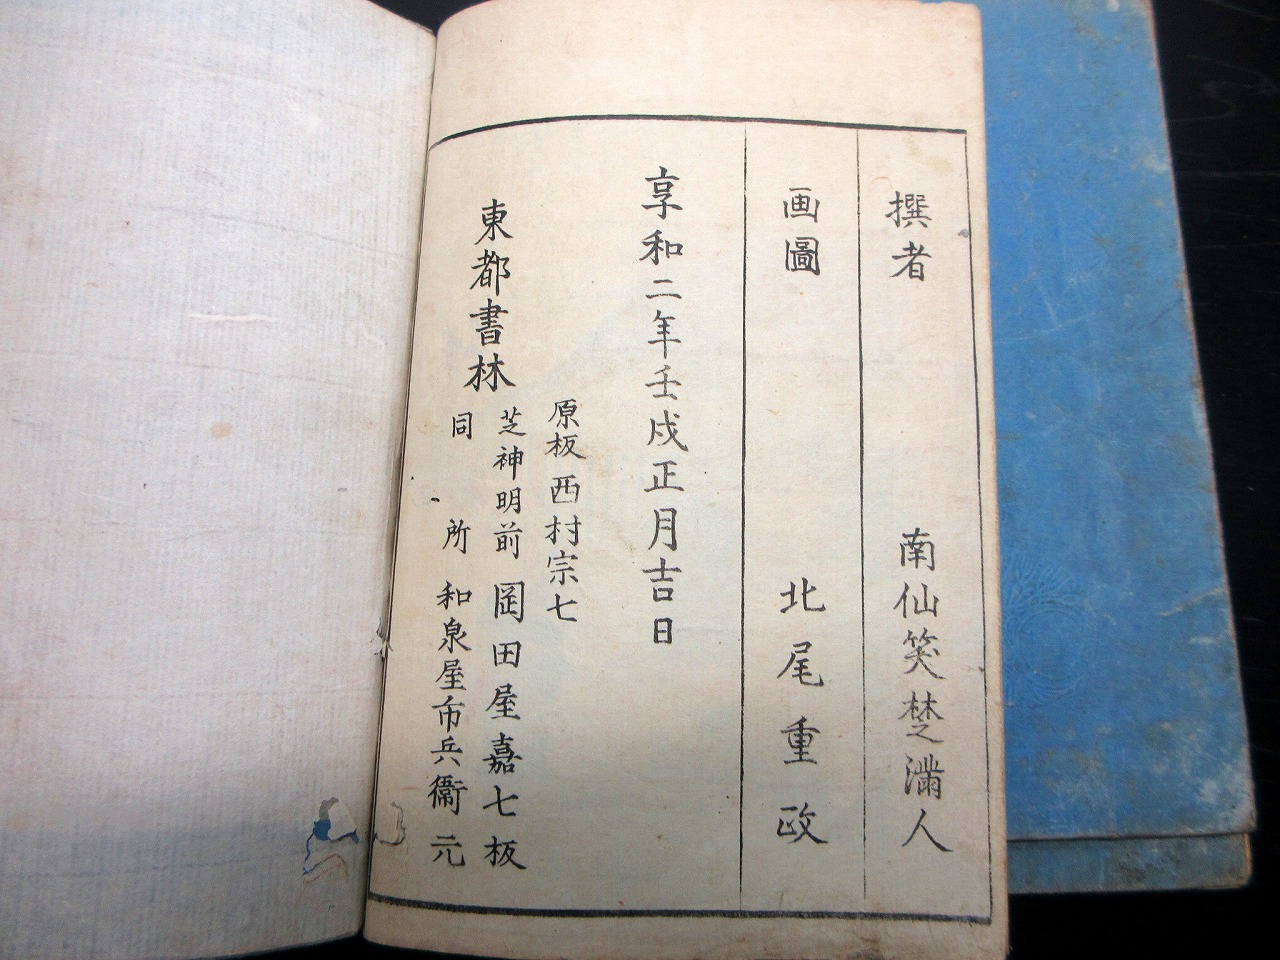 撰者 南仙笑楚滿人
画圖 北尾重政
享和二年壬戌正月吉日
東都書林
原板 西村宗七
芝神明前 岡田屋嘉七板
同所 和泉屋市兵衞元